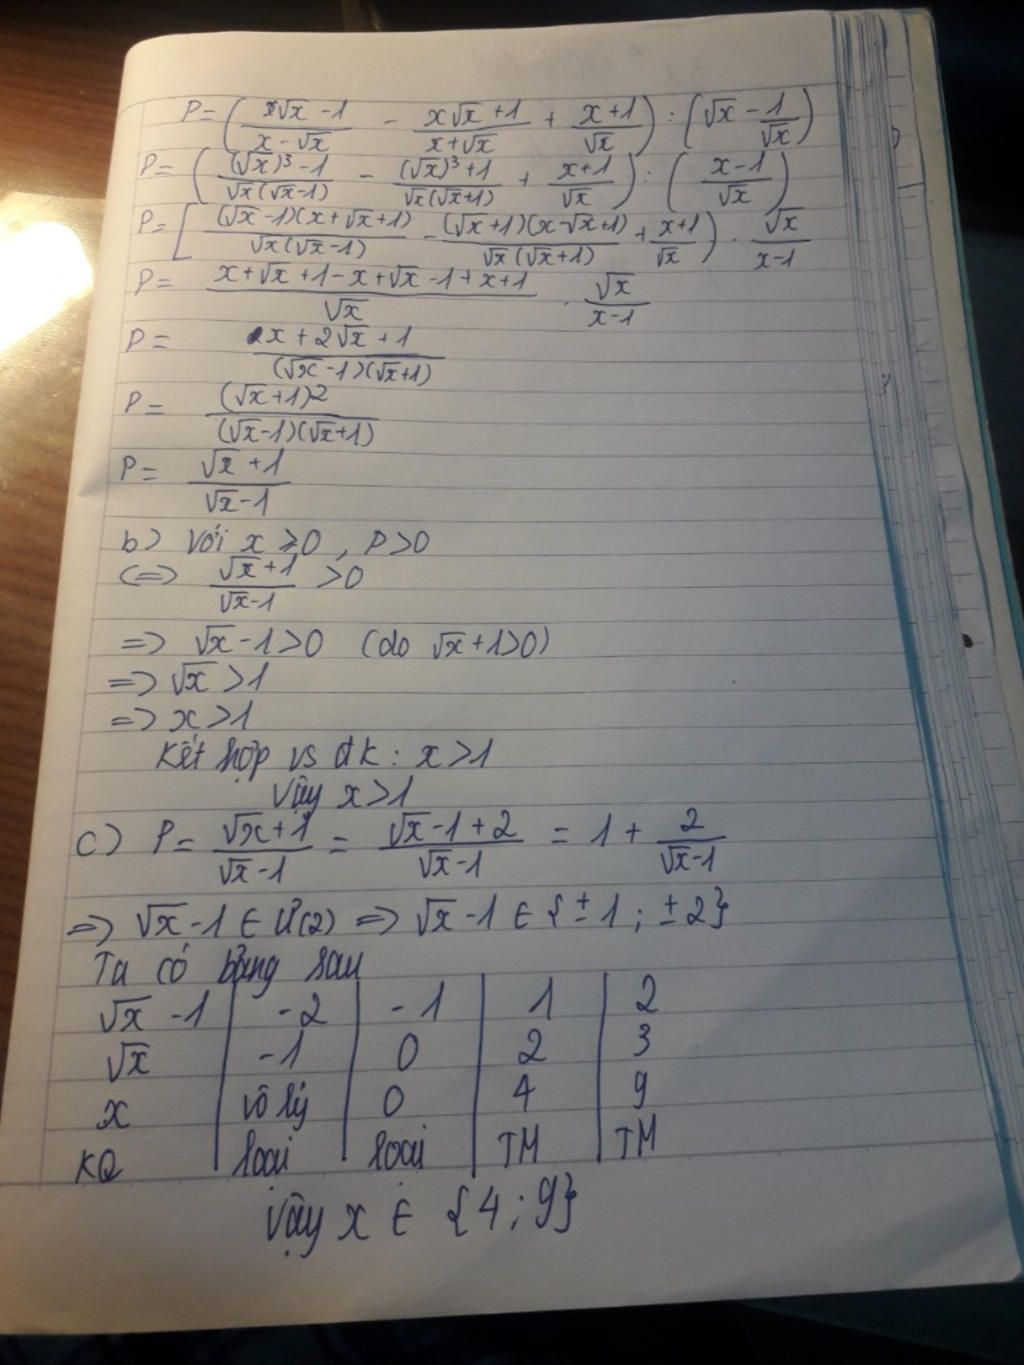 P= (x√x -1 / x-√x - x√x +1 / x+√x + x+1 / √x) : (√x - 1/√x)
P= ((√x)³ -1 / √x(√x-1) - (√x)³+1 / √x(√x+1) + x+1 / √x) : (x-1 / √x)
P= [(√x -1)(x+√x+1) / √x(√x-1) - (√x+1)(x-√x+1) / √x(√x+1) + x+1 / √x) . √x / x-1
P= x+√x +1-x+√x -1+x+1 / √x . √x / x-1
P= x+2√x +1 / (√x -1)(√x+1)
P= (√x+1)2 / (√x-1)(√x+1)
P= √x +1 / √x-1
b) Với x ⩾0 , P>0
(=) √x+1 / √x-1 >0
=> √x-1>0 (do √x+1>0)
=> √x >1
=> x>1
Kết hợp vs đk: x>1
Vậy x>1
c) P= √x+1 / √x-1 = √x-1+2 / √x-1 = 1+ 2 / √x-1
=> √x-1 ∈ Ư(2) => √x-1 ∈ {±1 ; ±2}
Ta có bảng sau
√x -1 | -2 | -1 | 1 | 2
√x | -1 | 0 | 2 | 3
x | vô lý | 0 | 4 | 9
KQ | loại | loại | TM | TM
Vậy x ∈ {4; 9}